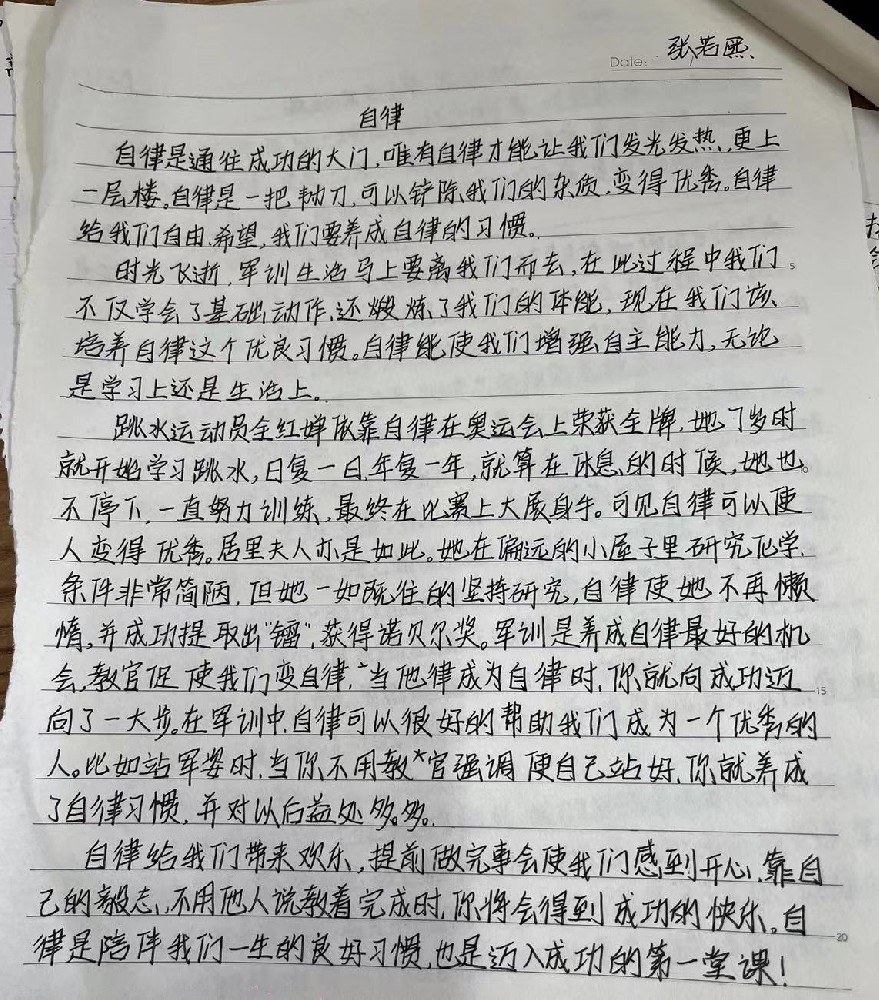 Date: 张若熙
自律
自律是通往成功的大门,唯有自律才能让我们发光发热,更上
一层楼。自律是一把刀,可以铲除我们的杂质,变得优秀。自律
给我们自由、希望,我们要养成自律的习惯。
时光飞逝,军训生活马上要离我们而去,在此过程中我们
不仅学会了基础动作,还煅炼了我们的体能,现在我们该
培养自律这个优良习惯。自律能使我们增强自主能力,无论
是学习上还是生活上。
跳水运动员全红婵依靠自律在奥运会上荣获金牌,她7岁时
就开始学习跳水,日复一日,年复一年,就算在休息的时候,她也
不停下,一直努力训练,最终在比赛上大展身手。可见自律可以使
人变得优秀。居里夫人亦是如此。她在偏远的小屋子里研究化学,
条件非常简陋,但她一如既往的坚持研究,自律使她不再懒
惰,并成功提取出“镭”,获得诺贝尔奖。军训是养成自律最好的机
会,教官促使我们变自律,当他律成为自律时,你就向成功迈
向了一大步。在军训中,自律可以很好的帮助我们成为一个优秀的
人。比如站军姿时,当你不用教官强调便自己站好,你就养成
了自律习惯,并对以后益处多多。
自律给我们带来欢乐,提前做完事会使我们感到开心,靠自
己的毅志,不用他人说教着完成时,你将会得到成功的快乐。自
律是陪伴我们一生的良好习惯,也是迈入成功的第一堂课!
15
20